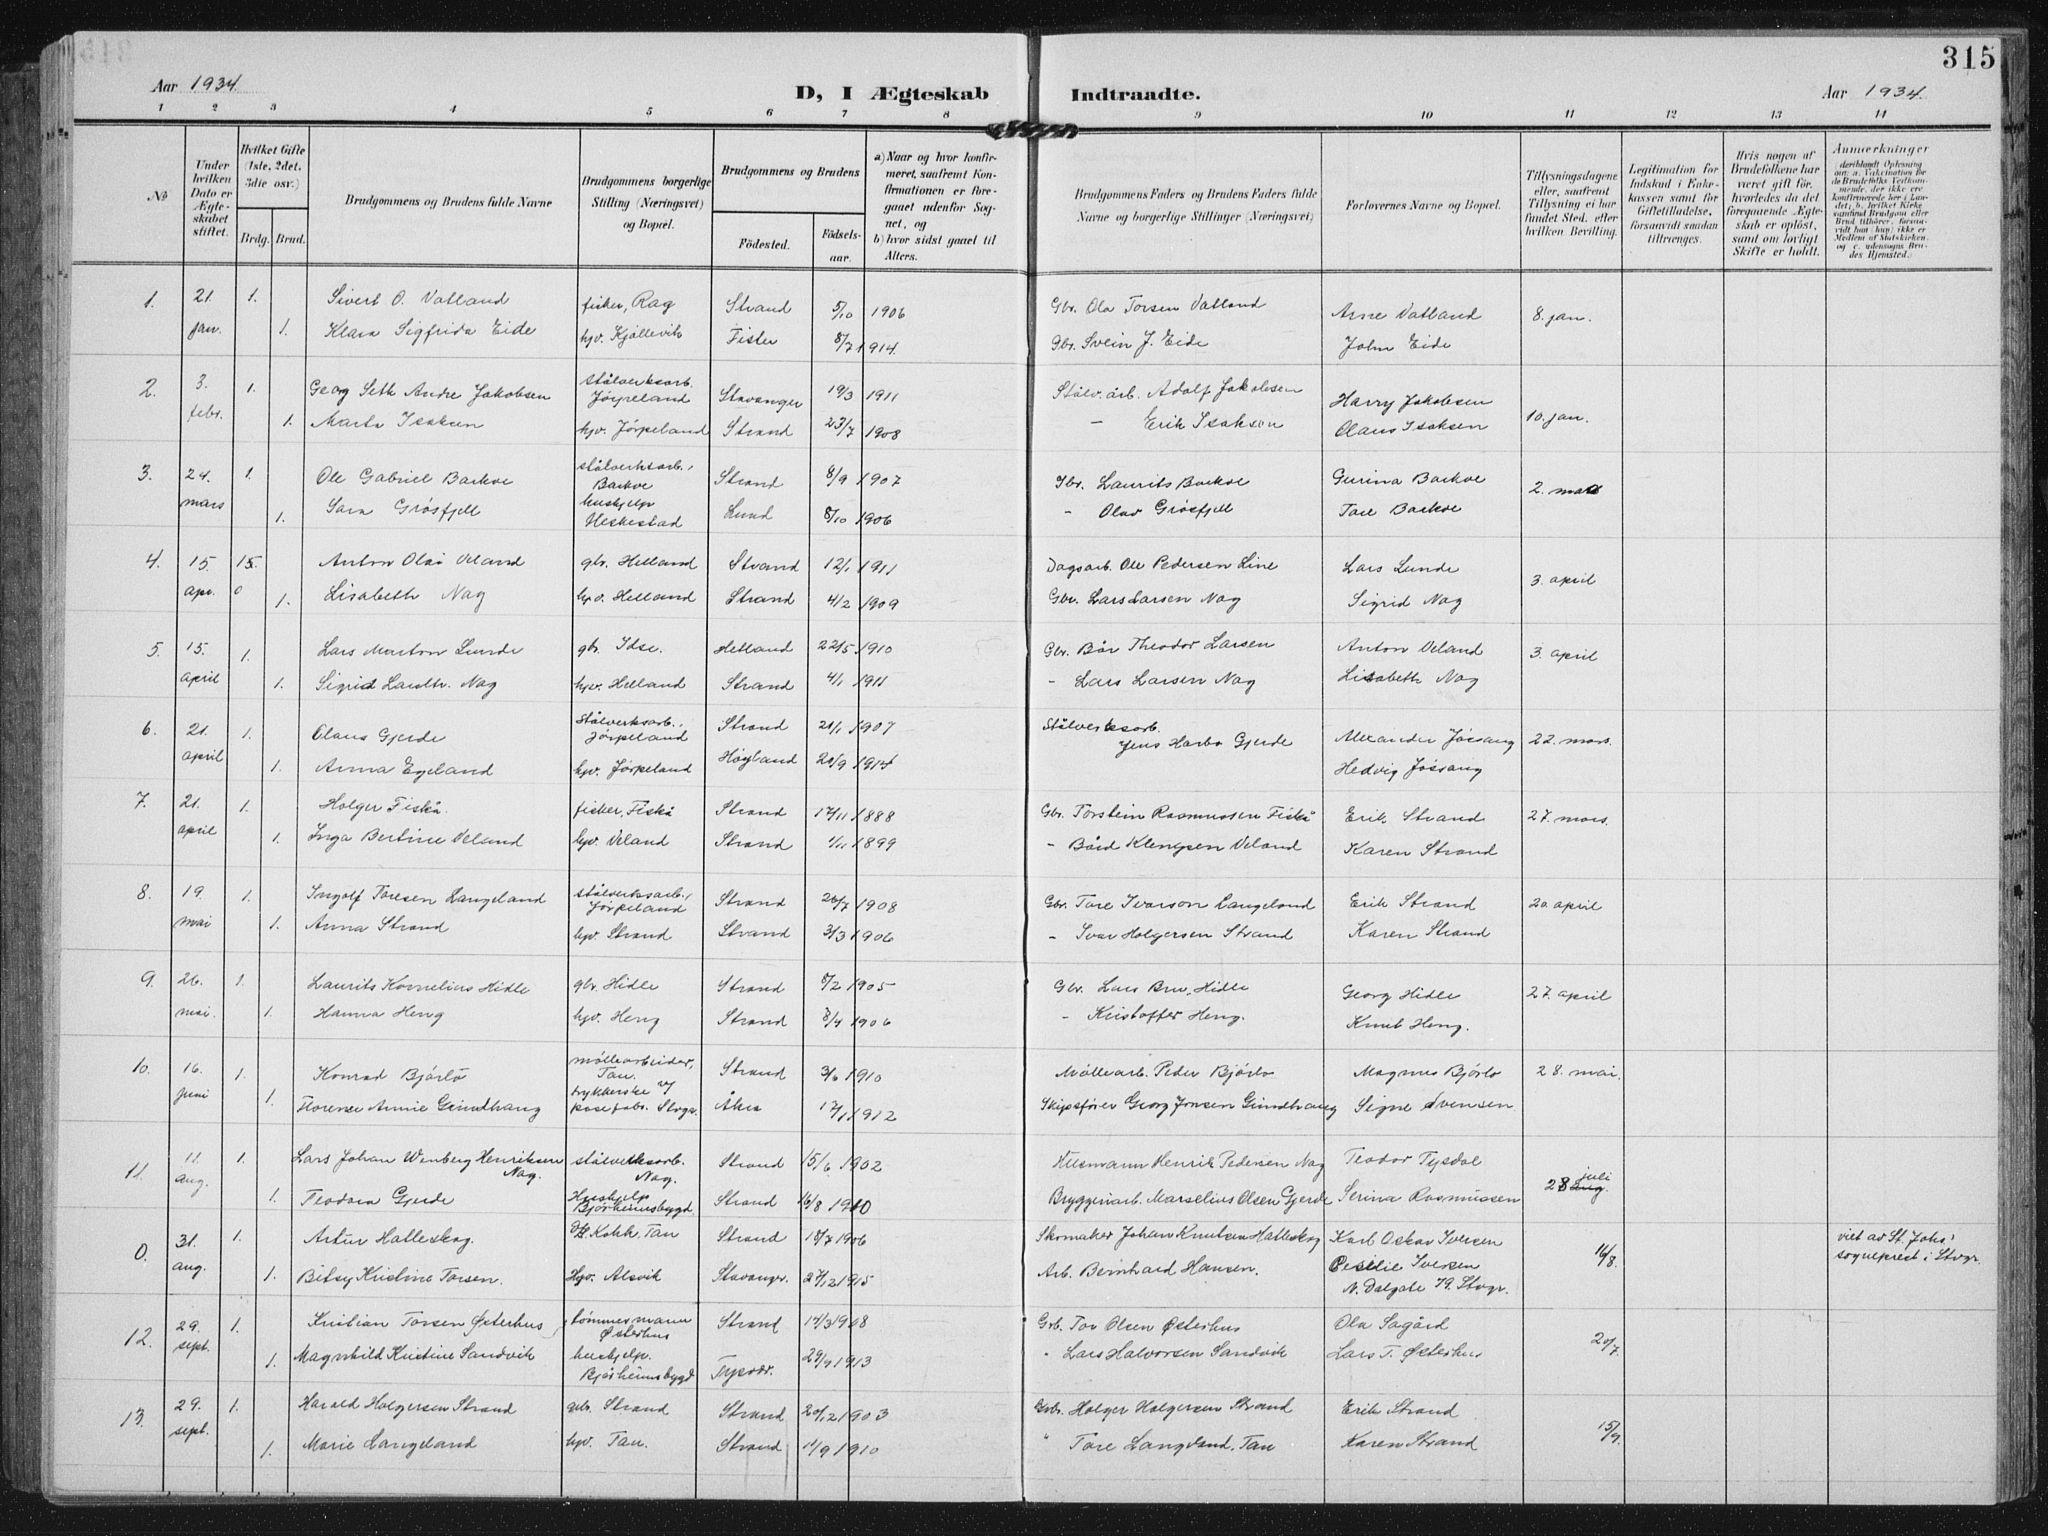 315
Aar 1934
D, I Ægteskab Indtraadte.
Aar 1934.
1 2 3 4 5 6 7 8 9 10 11 12 13 14
No
Under hvilken Dato er Ægteskabet stiftet.
Hvilket Gifte (1ste, 2det, 3die osv.)
Brdg. Brud.
Brudgommens og Brudens fulde Navne
Brudgommens borgerlige Stilling (Næringsvei) og Bopæl.
Brudgommens og Brudens
Födested. Födselsaar.
a) Naar og hvor konfirmeret, saafremt Konfirmationen er foregaaet udenfor Sognet, og
b) hvor sidst gaaet til Alters.
Brudgommens Faders og Brudens Faders fulde Navne og borgerlige Stillinger (Næringsvei)
Forlovernes Navne og Bopæl.
Tillysningsdagene eller, saafremt Tillysning ei har fundet Sted, efter hvilken Bevilling.
Legitimation for Indskud i Enkekassen samt for Giftetilladelse, forsaavidt saadan tiltrænges.
Hvis nogen af Brudefolkene har været gift för, hvorledes da det foregaaende Ægteskab er oplöst, samt om lovligt Skifte er holdt.
Anmerkninger
(deriblandt Oplysning om: a. Vaccination for de Brudefolks Vedkommende, der ikke ere konfirmerede her i Landet; b. hvilket Kirkesamfund Brudgom eller Brud tilhörer, forsaavidt han (hun) ikke er Medlem af Statskirken, og c. udensogns Brudes Hjemsted.)
1. 21. 1. Sivert O. Vatland fisker, Rag Strand 5/10 1906 Gbr. Ola Torsen Vatland Arne Vatland 8. jan.
jan. 1. Klara Sigfrida Eide hjv. Kjøllevik Fister 8/7 1914. Gbr. Svein J. Eide John Eide
2. 3. 1. Georg Seth Andre Jakobsen stålverksarb. Jørpeland Stavanger 19/3 1911 Stålv.arb. Adolf Jakobsen Harry Jakobsen 10. jan.
febr. 1. Marta Isaksen hjv. Jørpeland Strand 23/7 1908 – Erik Isaksen Olaus Isaksen
3. 24. 1. Ole Gabriel Barkve stålverksarb., Barkve Strand 8/9 1907 Gbr. Laurits Barkve Gurina Barkve 2. mars
mars 1. Sara Grøsfjell hushjelp Heskestad Lund 8/10 1906 – Olav Grøsfjell Tore Barkve
4. 15. Anton Olai Veland gbr. Helland Strand 12/1 1911 Dagsarb. Ole Pedersen Line Lars Lunde 3. april
apr. 1. Lisabeth Nag hjv. Helland Strand 4/2 1909 Gbr. Lars Larsen Nag Sigrid Nag
5. 15. 1. Lars Morton Lunde gbr. Idse. Hetland 22/5 1910 Gbr. Bår Theodor Larsen Anton Veland 3. april
april 1. Sigrid Larstr. Nag hjv. Helland Strand 4/1 1911 – Lars Larsen Nag Lisabeth Nag
6. 21. 1. Olaus Gjerde Stålverksarb., Jørpeland Strand 21/1 1907 Stålverksarb. Jens Harbo Gjerde Alexander Jøssang 22. mars.
april 1. Anna Egeland hjv. Jørpeland Høgland 20/9 1914 Hedvig Jøssang
7. 21. 1. Holger Fiskå. fisker, Fiskå Strand 17/11 1888 Gbr. Torstein Rasmussen Fiskå Erik Strand 27. mars.
april 1. Inga Bertine Veland hjv. Veland Strand 1/11 1899 – Bård Klengsen Veland Karen Strand
8. 19. 1. Ingolf Toresen Langeland stålverksarb., Jørpeland Strand 26/7 1908 Gbr. Tore Ivarson Langeland Erik Strand 20. april
mai 1. Anna Strand hjv. Strand Strand 3/3 1906 – Ivar Holgersen Strand Karen Strand
9. 26. 1. Laurits Kornelius Hidle gbr. Hidle Strand 8/2 1905 Gbr. Lars Bru, Hidle Georg Hidle 27. april
mai. 1. Hanna Heng hjv. Heng Strand 8/4 1906 – Kristoffer Heng. Knut Heng.
10. 16. 1. Konrad Bjørlo møllearbeider, Tau. Strand 3/6 1910 Møllearb. Peder Bjørlo Magnus Bjørlo 28. mai.
juni 1. Florense Annie Grindhaug trykkerske v/ posefabr. Stvgr. Åkra 17/1 1912 Skipsfører Georg Jonsen Grindhaug Signe Svensen
11. 11. 1. Lars Johan Wenberg Henriksen Nag. stålverksarb. Nag. Strand 15/6 1902 Husmann Henrik Pedersen Nag Teodor Tysdal 28 juli
aug. 1. Teodora Gjerde Hushjelp Bjørheimsbygd Strand 16/8 1910 Bryggeriarb. Marselius Olsen Gjerde Serina Rasmussen
0. 31. 1. Artur Halleskog. Kokk. Tau Strand 18/7 1906 Skomaker Johan Knutsen Halleskog Karl Oskar Iversen 16/8. viet av St. Johs' sogneprest i Stvgr.
aug. 1. Betsy Kristine Torsen. Hjv. Alsvik Stavangr. 27/12 1915 Arb. Bernhard Hansen. Cecilie Iversen
N. Dalgate 79. Stvgr.
12. 29. 1. Kristian Torsen Østerhus tømmermann Østerhus Strand 17/3 1908 Grb. Tor Olsen Østerhus Ola Sagård 20/7.
sept. 1. Magnhild Kristine Sandvik hushjelp. Bjørheimsbygd Tysvær. 29/9 1913 " Lars Halvorsen Sandvik Lars T. Østerhus
13. 29. 1. Harald Holgersen Strand grb. Strand Strand 20/12 1903 Grbr. Holger Holgersen Strand Erik Strand 15/9.
sept. 1. Marie Langeland hjv. Tau. Strand 11/9 1910 " Tore Langeland, Tau Karen Strand